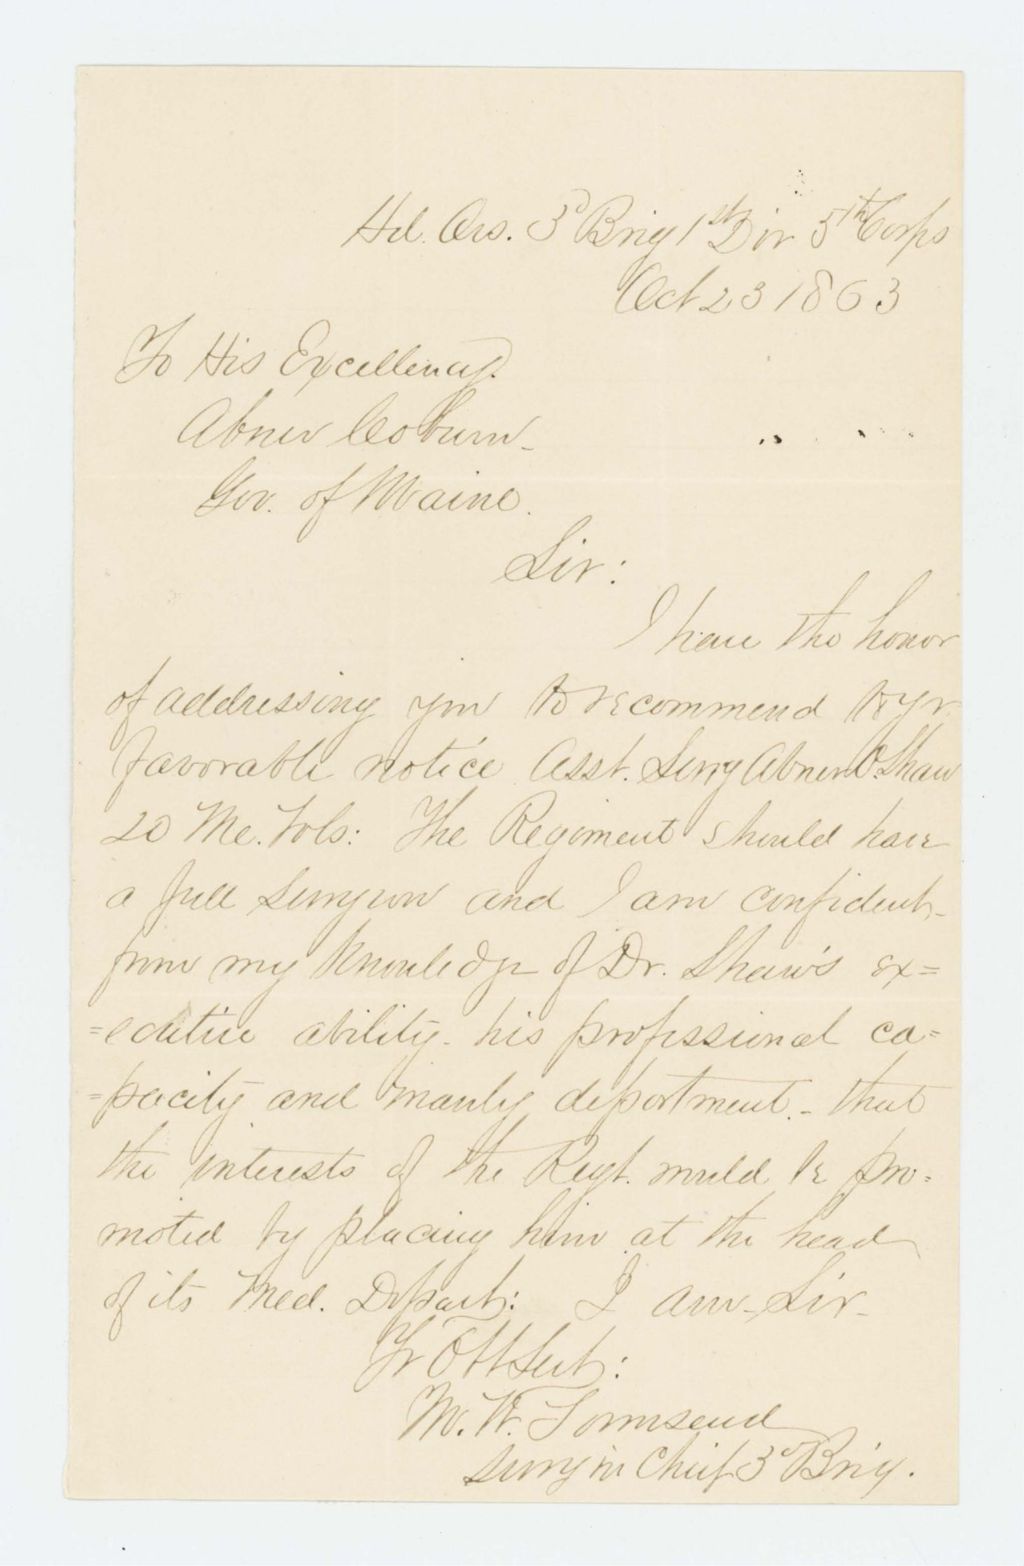 Hd. Qrs. 3d Brig 1st Div 5th Corps
Oct 23 1863
To His Excellency.
Abner Coburn -
Gov. of Maine.
Sir:
I have the honor
of addressing you to recommend to yr.
favorable notice Asst. Surg Abner O. Shaw
20 Me. Vols: The Regiment should have
a full Surgeon and I am confident -
from my knowledge of Dr. Shaw's ex=
=ecutive ability - his professional ca=
=pacity and manly deportment. - that
the interests of the Regt. would be pro=
moted by placing him at the head
of its Med. Depart: I am - Sir -
Yr Obt Svt:
M. W. Townsend
Surg in Chief 3d Brig.